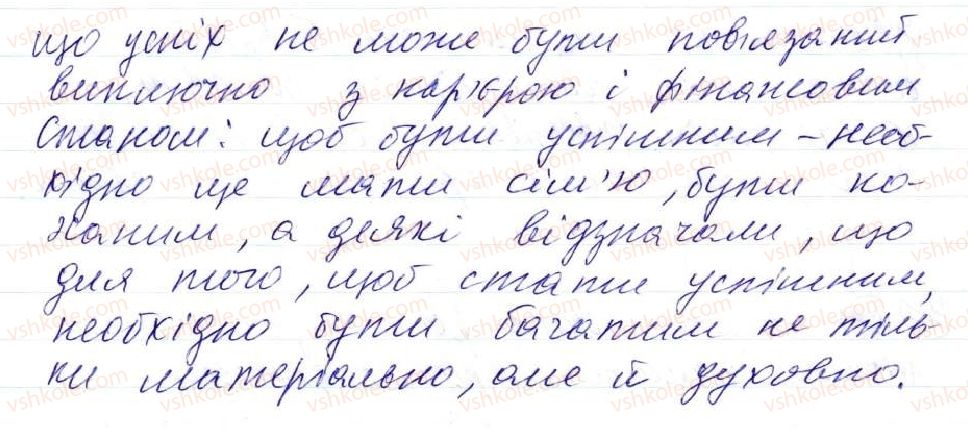 що успіх не може бути повязаний
виключно з кар'єрою і фінансовим
станом: щоб бути успішним – необ-
хідно ще мати сім'ю, бути ко-
ханим, а деякі відзначали, що
для того, щоб стати успішним,
необхідно бути багатим не тіль-
ки матеріально, але й духовно.